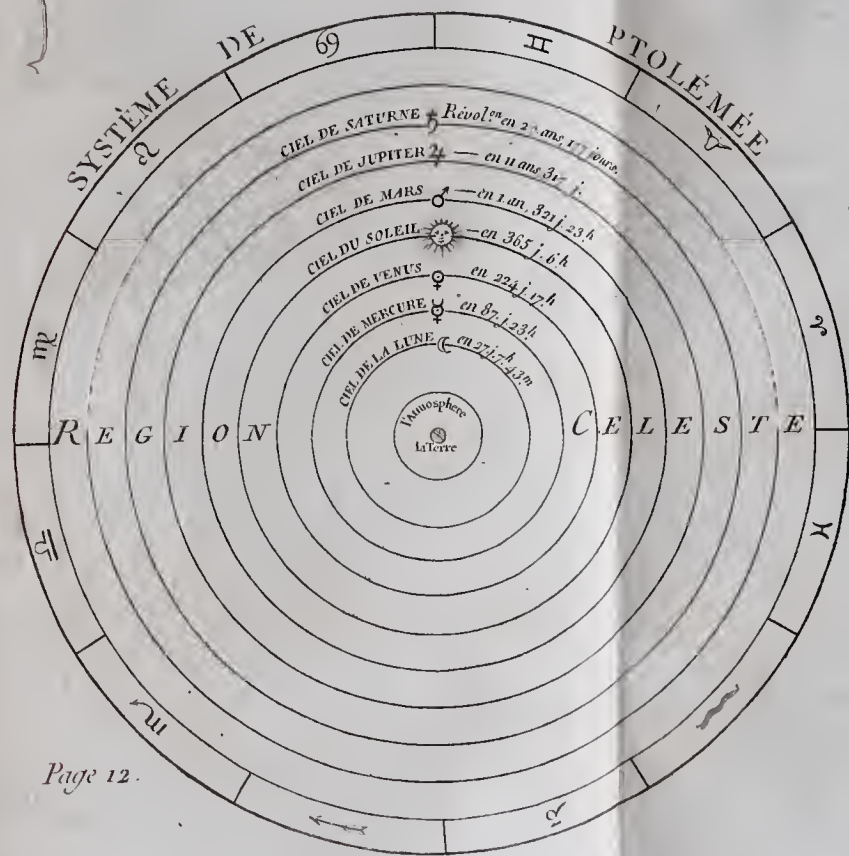 SYSTÈME DE PTOLÉMÉE
♋ ♊ ♉ ♈ ♓ ♒ ♑ ♐ ♏ ♎ ♍ ♌
CIEL DE SATURNE ♄ Révol.on en ans, jours.
CIEL DE JUPITER ♃ — en 11 ans j.
CIEL DE MARS ♂ — en 1 an, 321 j. 23.h
CIEL DU SOLEIL — en 365 j. 6.h
CIEL DE VENUS ♀ en 224 j. 17.h
CIEL DE MERCURE ☿ en 87. j. 23.h
CIEL DE LA LUNE ☾ en 27 j. 7.h 43.m
l'Atmosphere
la Terre
REGION CELESTE
Page 12.